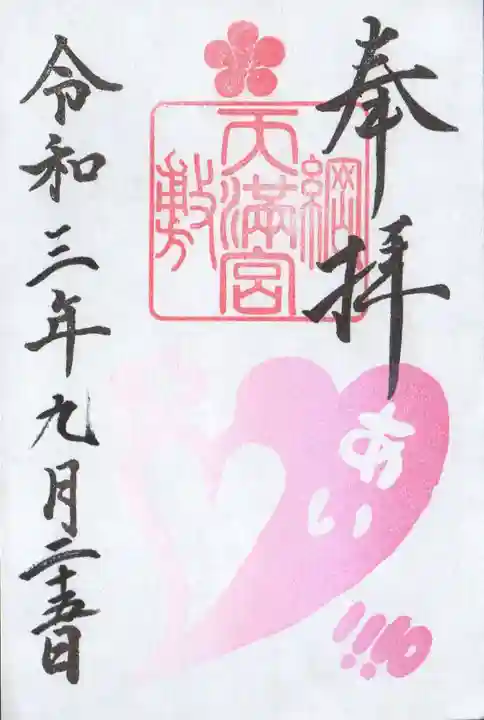 奉拝
綱敷
天満宮
あい
令和三年九月二十五日